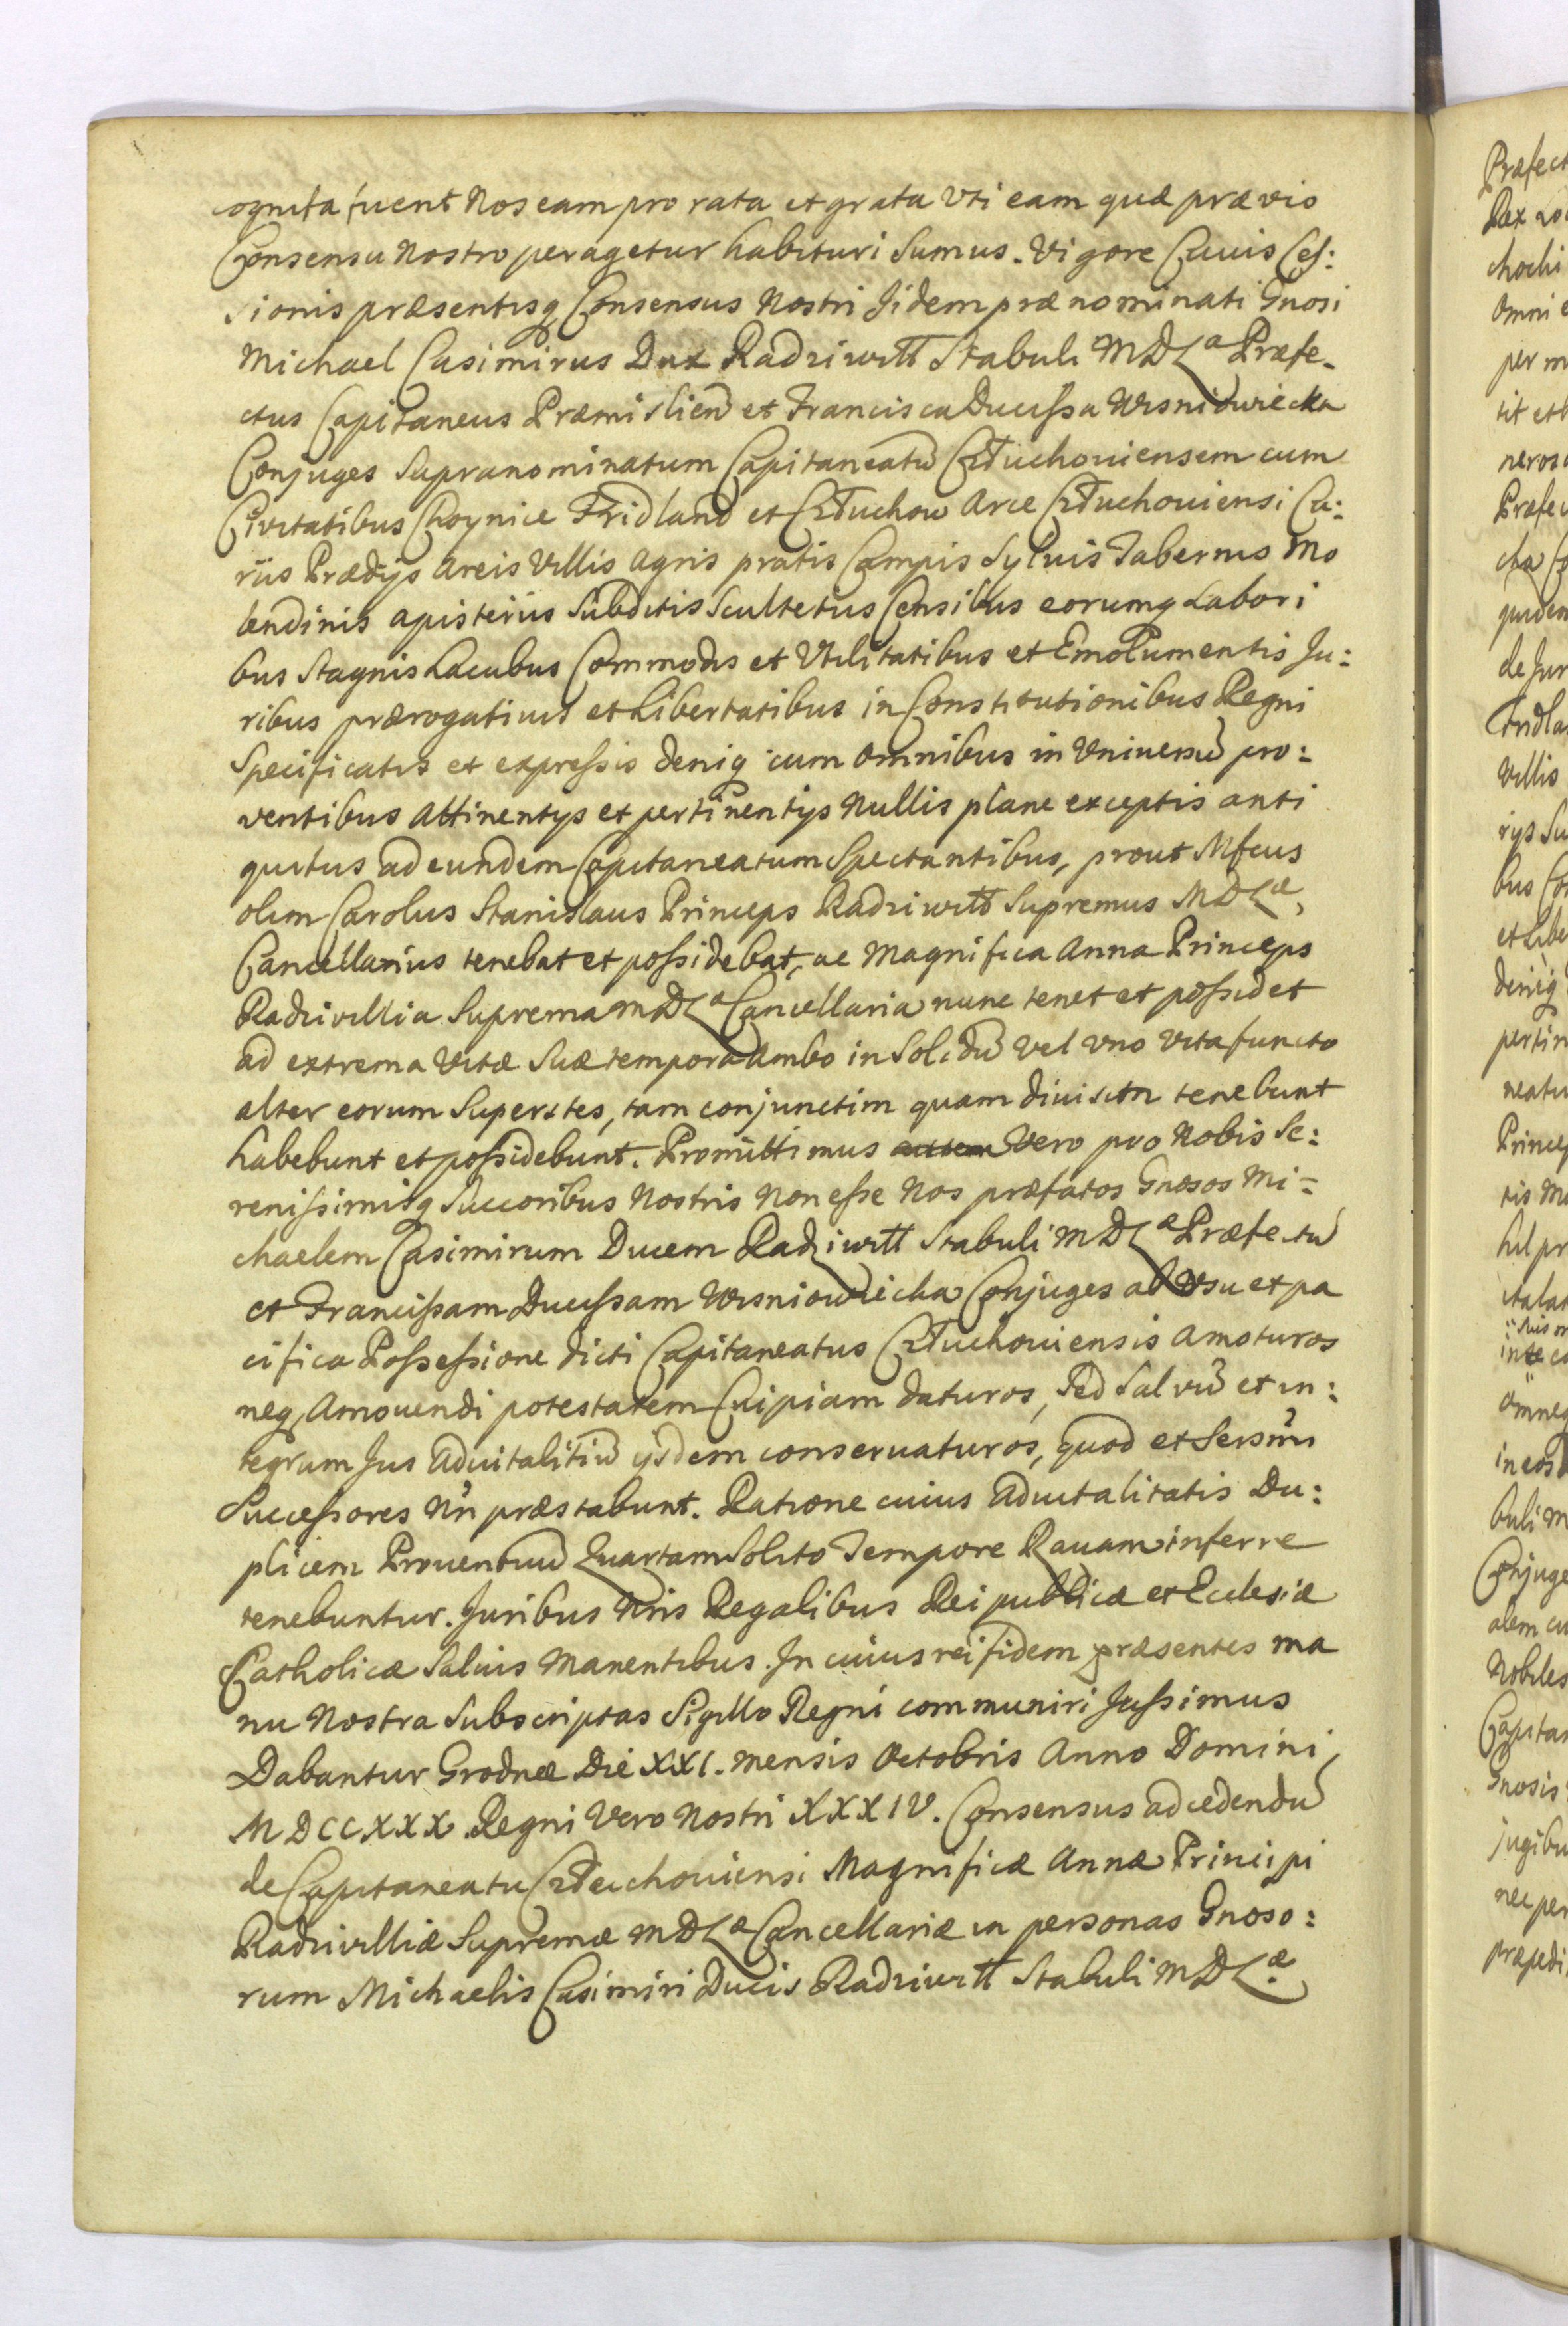 cognita fuerit Nos eam pro rata et grata Vti eam quæ prævio
Consensu Nostro peragetur habituri Sumus. Vigore Cuius Ces:
sionis præsentisq Consensus Nostri Jidem prænominati Gnosi
Michael Casimirus Dux Radziwiłł Stabuli MDLæ Præfe-
ctus Capitaneus Præmislien et Francisca Ducissa Wisniowiecka
Conjuges Supranominatum Capitaneatu Człuchouiensem cum
Civitatibus Choynice Fridland et Człuchow Arce Człuchouiensi Cu:
riis Prædijs Areis Villis Agris pratis Campis Syluis Tabernis Mo
lendinis apisteriis Subditis Scultetiis Censibus eorumq Labori
bus Stagnis Lacubus Commodis et Vtilitatibus et Emolumentis Ju:
ribus prærogatiuis et Libertatibus in Constitutionibus Regni
Specificatis et expressis deniq cum omnibus in Vniuersu pro:
ventibus Attinentys et pertinentijs Nullis plane exceptis anti
quitus ad eundem Capitaneatum Spectantibus, prout Mfcus
olim Carolus Stanislaus Princeps Radziwiłł Supremus MDLæ,
Cancellarius tenebat et possidebat, ac Magnifica Anna Princeps
Radzivillia Suprema MDLæ Cancellaria nunc tenet et possidet
ad extrema Vitæ Suæ tempora Ambo in Solidu vel Vno Vita functo
alter eorum Superstes, tam conjunctim quam diuisim tenebunt
habebunt et possidebunt. Promittimus autem Vero pro Nobis Se:
renissimisq Succoribus Nostris Non esse Nos præfatos Gnosos Mi=
chaelem Casimirum Ducem Radziwiłł Stabuli MDLæ Præfectu
et Francissam Ducissam Wisniowiecka Conjuges ab Vsu et pa
cifica Possessione dicti Capitaneatus Człuchouiensis Amoturos
neq, Amouendi potestatem Cuipiam daturos, Sed Salvu et in:
tegrum Jus Aduitalitiu ijsdem conseruaturos, quod et Sersmi
Successores Nri præstabunt. Ratione cuius Aduitalitatis Du:
plicem Prouentuu Quartam Solito Tempore Rauam inferre
tenebuntur. Juribus Nris Regalibus Reipublicæ et Eclesiæ
Catholicæ Saluis Manentibus. In cuius rei fidem præsentes ma
nu Nostra Subscriptas Sigillo Regni communiri Jussimus
Dabantur Grodnæ Die XXI. mensis Octobris Anno Domini,
MDCCXXX. Regni Vero Nostri XXXIV. Consensus ad cedendu
de Capitaneatu Człuchouiensi Magnificæ Annæ Principi
Radzivilliæ Supremæ MDLæ Cancellariæ in personas Gnoso:
rum Michaelis Casimiri Ducis Radziwiłł Stabuli MDLæ